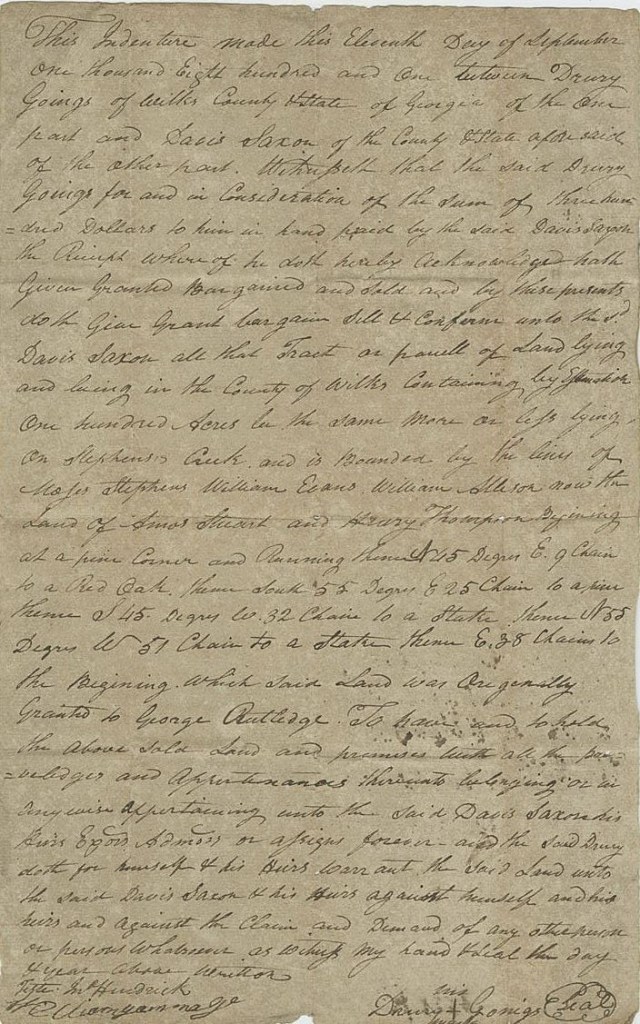 This Indenture made this Eleventh Day of September
One thousand Eight hundred and One between Drury
Goings of Wilks County & State of Georgia of the One
part and Davis Saxon of the County & State afore said
of the other part. Witnesseth that the said Drury
Goings for and in Consideration of the Sum of three hun
=dred Dollars to him in hand paid by the said Davis Saxon
the Receipt where of he doth hereby acknowledge hath
Given Granted Bargained and Sold and by these presents
doth Give Grant bargain Sell & Confirm unto the sd.
Davis Saxon all that Tract or parcell of Land lying
and being in the County of Wilks Containing by Estimation
One hundred Acres be the same more or less lying
on Stephens's Creek and is Bounded by the lines of
Moses Stephens William Evans William Allison now the
Land of Amos Stuart and Henry Thompson Begining
at a pine Corner and Running thence N 45 Degres E. 9 Chain
to a Red Oak thence South 55 Degres E 25 Chain to a pine
thence S 45 Degres W. 32 Chain to a Stake thence N 55
Degres W 51 Chain to a Stake thence E. 38 Chains to
the Begining. Which said Land was Oregenally
Granted to George Rutledge. To have and to hold
the above Sold Land and premises with all the pre=
=veledges and Appertenances thereunto belonging or in
any wise appertaining unto the said Davis Saxon his
Heirs Exors Admors or assigns forever and the said Drury
doth for himself & his Heirs warrant the said Land unto
the said Davis Saxon & his Heirs against himself and his
heirs and against the Claim and Demand of any other person
or persons Whatsoever as witness my hand & Seal the day
& year above written
Teste. Hendrick
his
Drury + Gonigs Seal